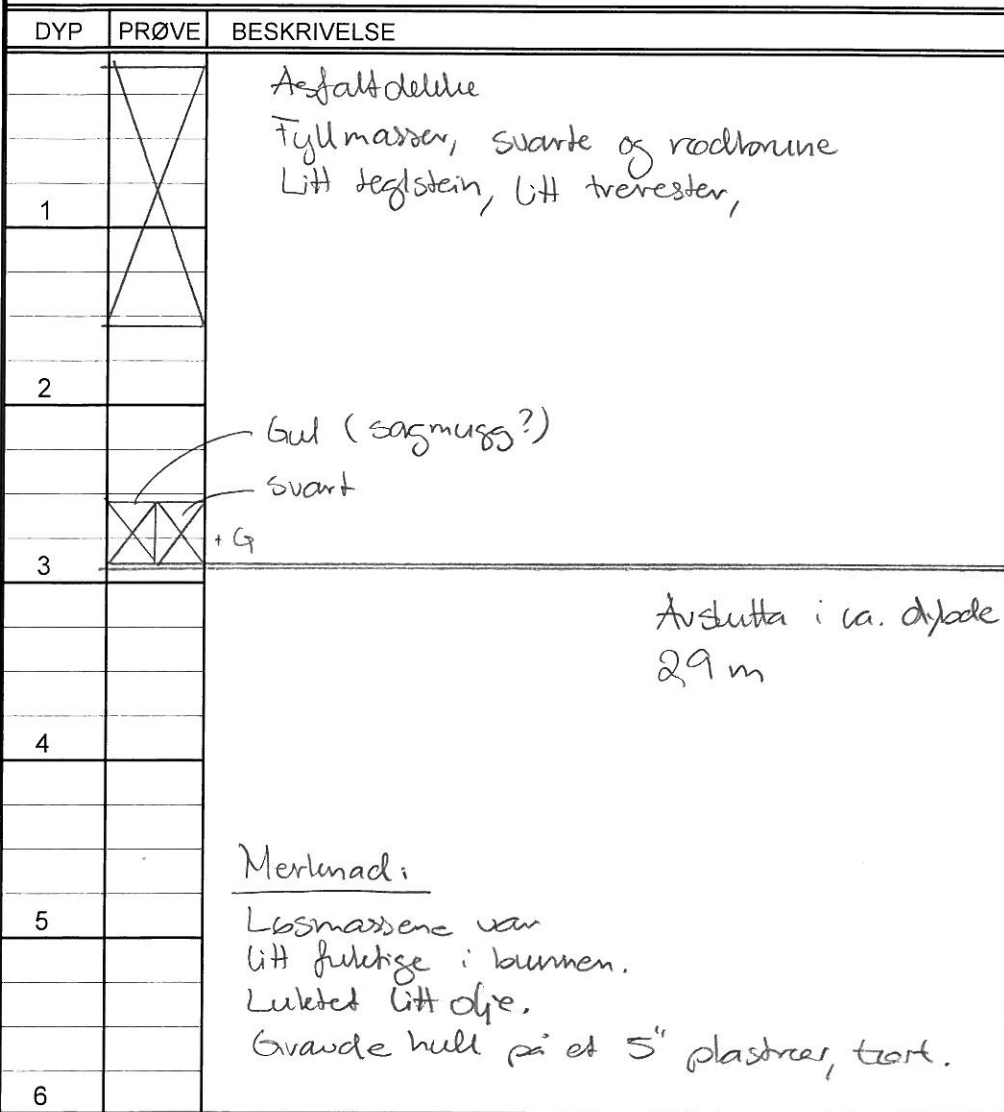 DYP PRØVE BESKRIVELSE
Asfaltdekke
Fyllmasser, svarte og rødbrune
Litt teglstein, litt trerester,
1
2
Gul (sagmugg?)
svart
+ G
3
Avslutta i ca. dybde
2,9 m
4
Merknad:
5
Løsmassene var
litt fuktige i bunnen.
Luktet litt olje.
Gravde hull på et 5" plastrør, tørt.
6